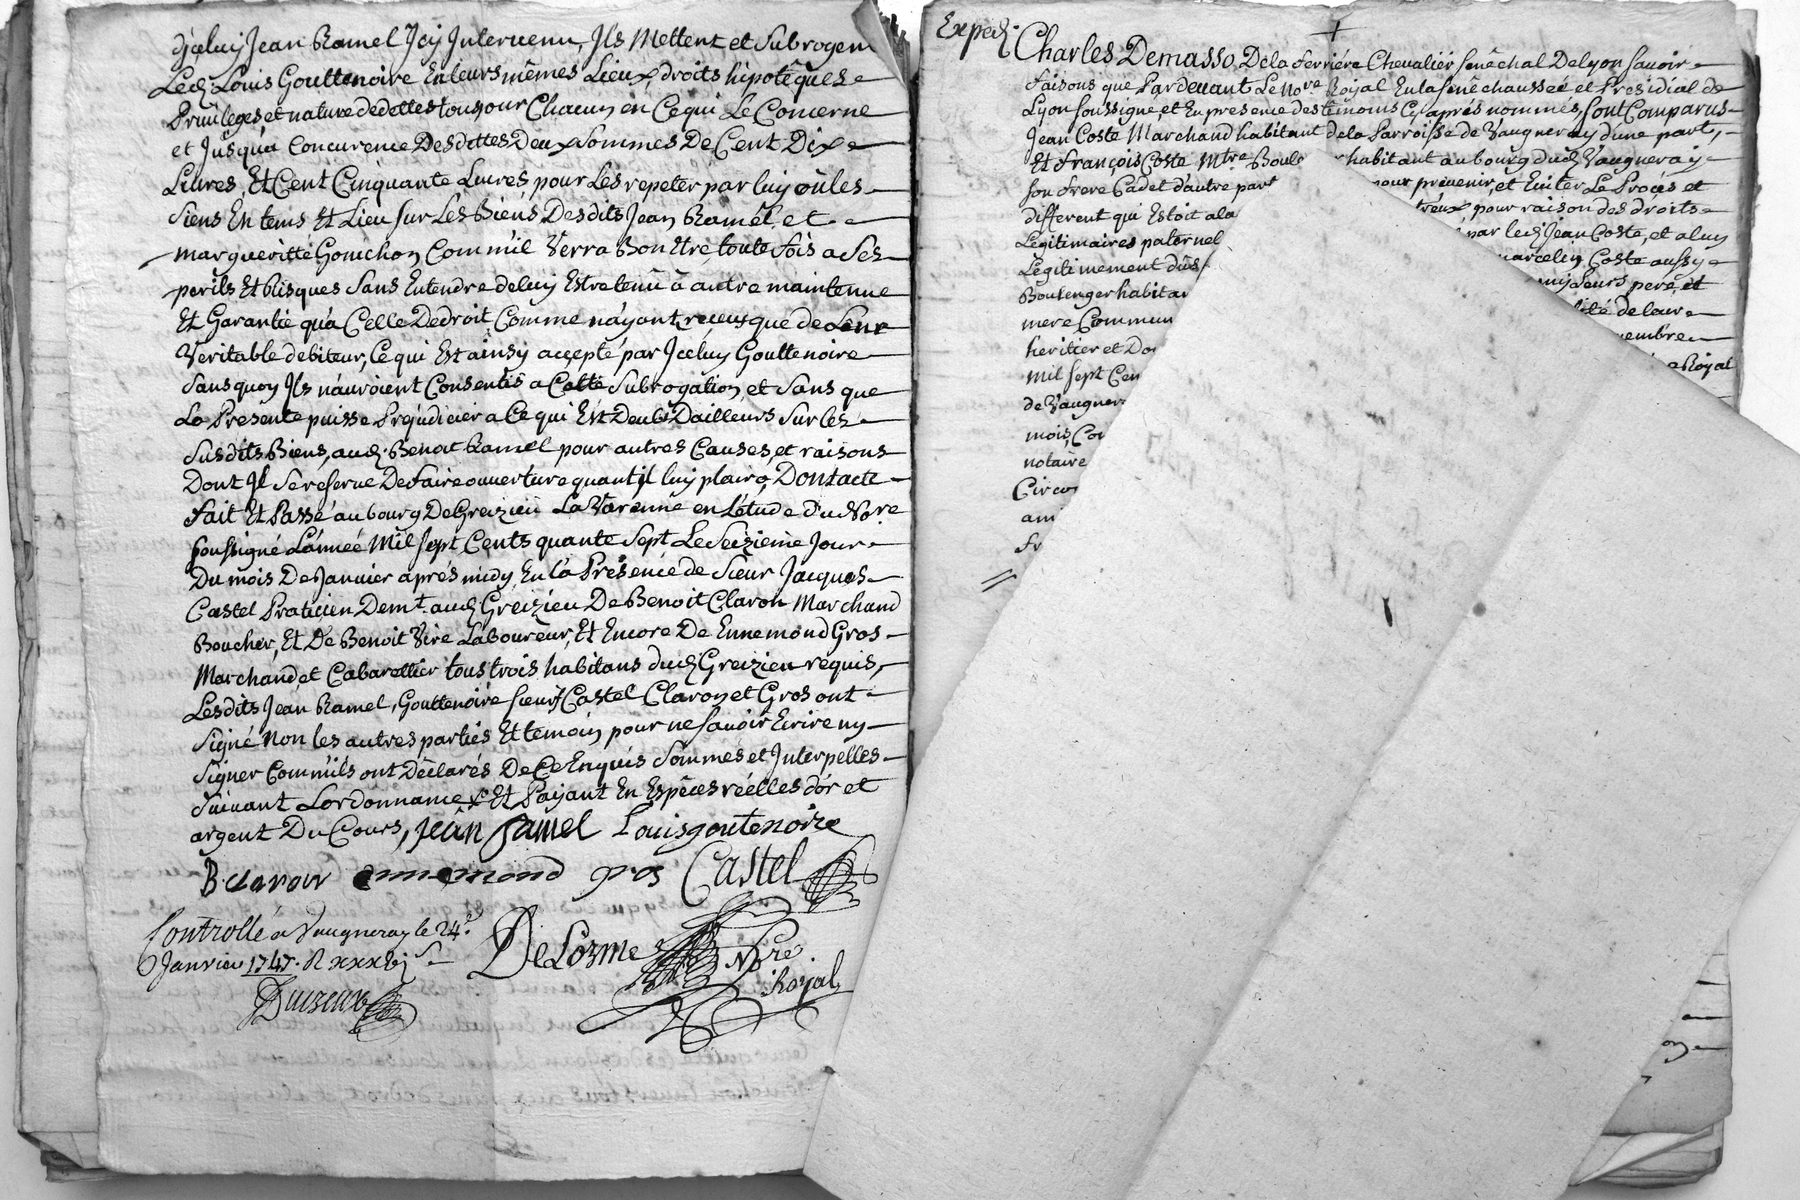 d'jceluy Jean Ramel Jcy Jnteruenu, Jls Mettent et Subrogent
Led Louis Gouttenoire En leurs mêmes Lieux, droits hipotêques
Priuileges et nature de dettes tous pour Chacun en Ce qui Le Concerne
et Jusqu'a Concurence Desdittes Deux Sommes De Cent Dix
Liures, Et Cent Cinquante Liures pour Les repeter par luy où les
Siens En tems Et Lieu sur Les Biens Desdits Jean Ramel, et
margueritte Gonichon Comm'il Verra Bon Etre toute fois a Ses
perils Et Risques Sans Entendre de luy Estre tenû à autre maintenue
Et Garantie qu'a Celle De droit, Comme n'ayant reçeus que de Leur
Veritable debiteur, Ce qui Est ainsy accepté par Jceluy Gouttenoire
Sans quoy Jls n'auroient Consentis a Cette Subrogation, et Sans que
La Presente puisse Prejudicier a Ce qui Est Deub D'ailleurs Sur les
Susdits Biens, aud. Benoit Ramel pour autres Causes, et raisons
Dont Jl Se reserue De faire ouuerture quant il luy plaira, Dont acte
fait Et Passé au bourg De Greizieu La Varenne en L'étude du No.re
soussigné L'année Mil Sept Cents quante Sept Le Seizieme Jour
Du mois De Januier après midy, En la Présence de Sieur Jacques
Castel Praticien Dem.t aud Greizieu De Benoit Claron Marchand
Boucher, Et De Benoit Vire Laboureur, Et Encore De Ennemond Gros
Marchand, et Cabarettier tous trois habitans dud Greizieu requis,
Lesdits Jean Ramel, Gouttenoire sieurs Castel Claron et Gros ont
Signé Non les autres parties Et temoin pour ne Sauoir Ecrire ny
Signer Comm'ils ont Déclarés De Ce Enquis Sommés et Jnterpellés
Suiuant Lordonnance Et Payant En Espèces réelles d'or et
argent Du Cours, Jean Ramel Louis goutenoire
B. claron ennemond gros Castel
Controllé a Vaugneray le 24.e
Janvier 1747. R xxxvj s
DeLorme No.re Royal
Exped.
Charles Demasso, De la Ferriére Cheualiér Senéchal De Lyon Sauoir
faisons que Pardeuant Le No.re Royal En la Senéchausseé et Presidial de
Lyon Soussigné, et En presence des temoins Cy après nommés, Sont Comparus
Jean Coste Marchand habitant de la Parroisse de Vaugneray d'une part,
Et François Coste M.tre Boule habitant au bourg dud Vaugneray
son frere Cadet d'autre part pour préuenir, et Euiter Le Procés et
different qui Estoit a la pour raison des droits
Legitimaires paternel par led Jean Coste, et a luy
Légitimement dûs marcelin Coste aussy
Boulenger habitan leurs pere, et
mere Commun de leur
heritier et Do embre
mil Sept Cen Royal
de Vaugnera
mois, Con
notaire
Circon
ami
fr